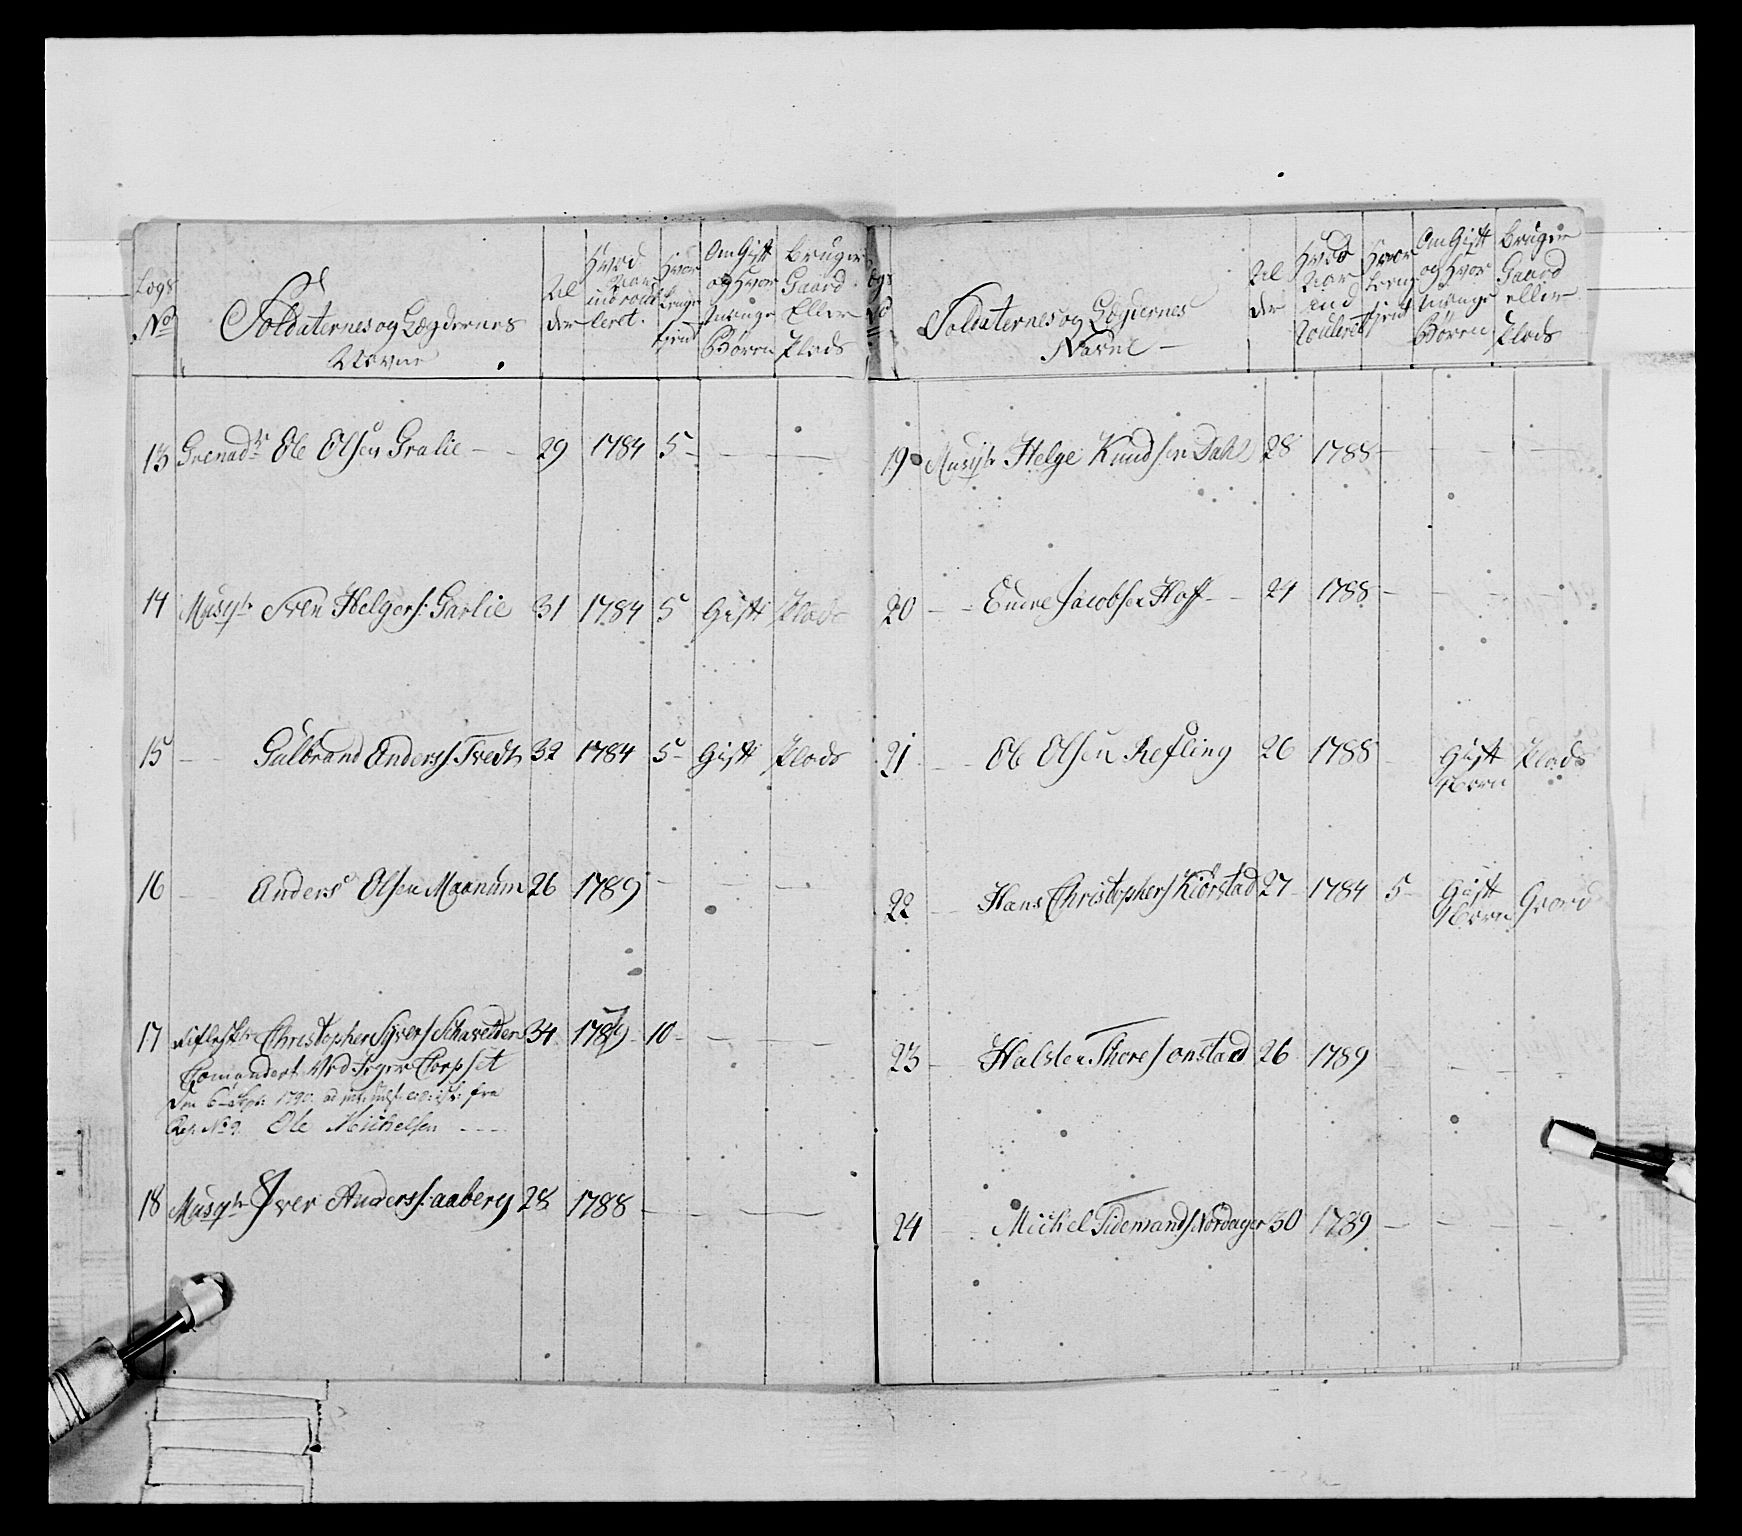 Lægs No
Soldaternes og Lægdernes
Navne
Al
der
Hvad
Aar
indroul
leret.
Hvor
Længe
tient
Om Gift
og Hvor
Mange
Børn
Bruger
Gaard
Eller
Plads
13 Grenadr Ole Olsen Gralie - - 29 1784 5 - - -
14 Musqtr Sven Helgers: Garlie 31 1784 5 Gift Plads
15 - - Gulbrand Anderss: Tvedt 32 1784 5 - Gift Plads
16 - - Anders Olsen Maanum 26 1789 - - -
17 Christopher Syvers Schavelden 34 1789 10 - - -
Comandert Ved Jeger Corpset
Den 6 Sept: 1790. fra
No 9. Ole Michelsen - - -
18 Musqtr Iver Anderss: aaberg 28 1788 - - - -
Lægs
No
Soldaternes og Lægdernes
Navne -
Al
der
Hvad
Aar
ind
Rouleret
Hvor
Leng
tient
Om Gift
og Hvor
Mange
Børn
Bruger
Gaard
eller
Plads
19 Musqtr Helge Knudsen Dahl 28 1788 - - -
20 - - Endre Jacobsen Hoff - - 24 1788 - - -
21 - - Ole Olsen Refling 26 1788 - Gift Plads
1 Barn
22 - Hans Christophers Kiørstad 27 - 1784 5 - Gift Gaard
1 Barn
23 - Halsten Thores onstad 26 1789 - -
24 - - Michel Tidemands Nordager 30 1789 - - -